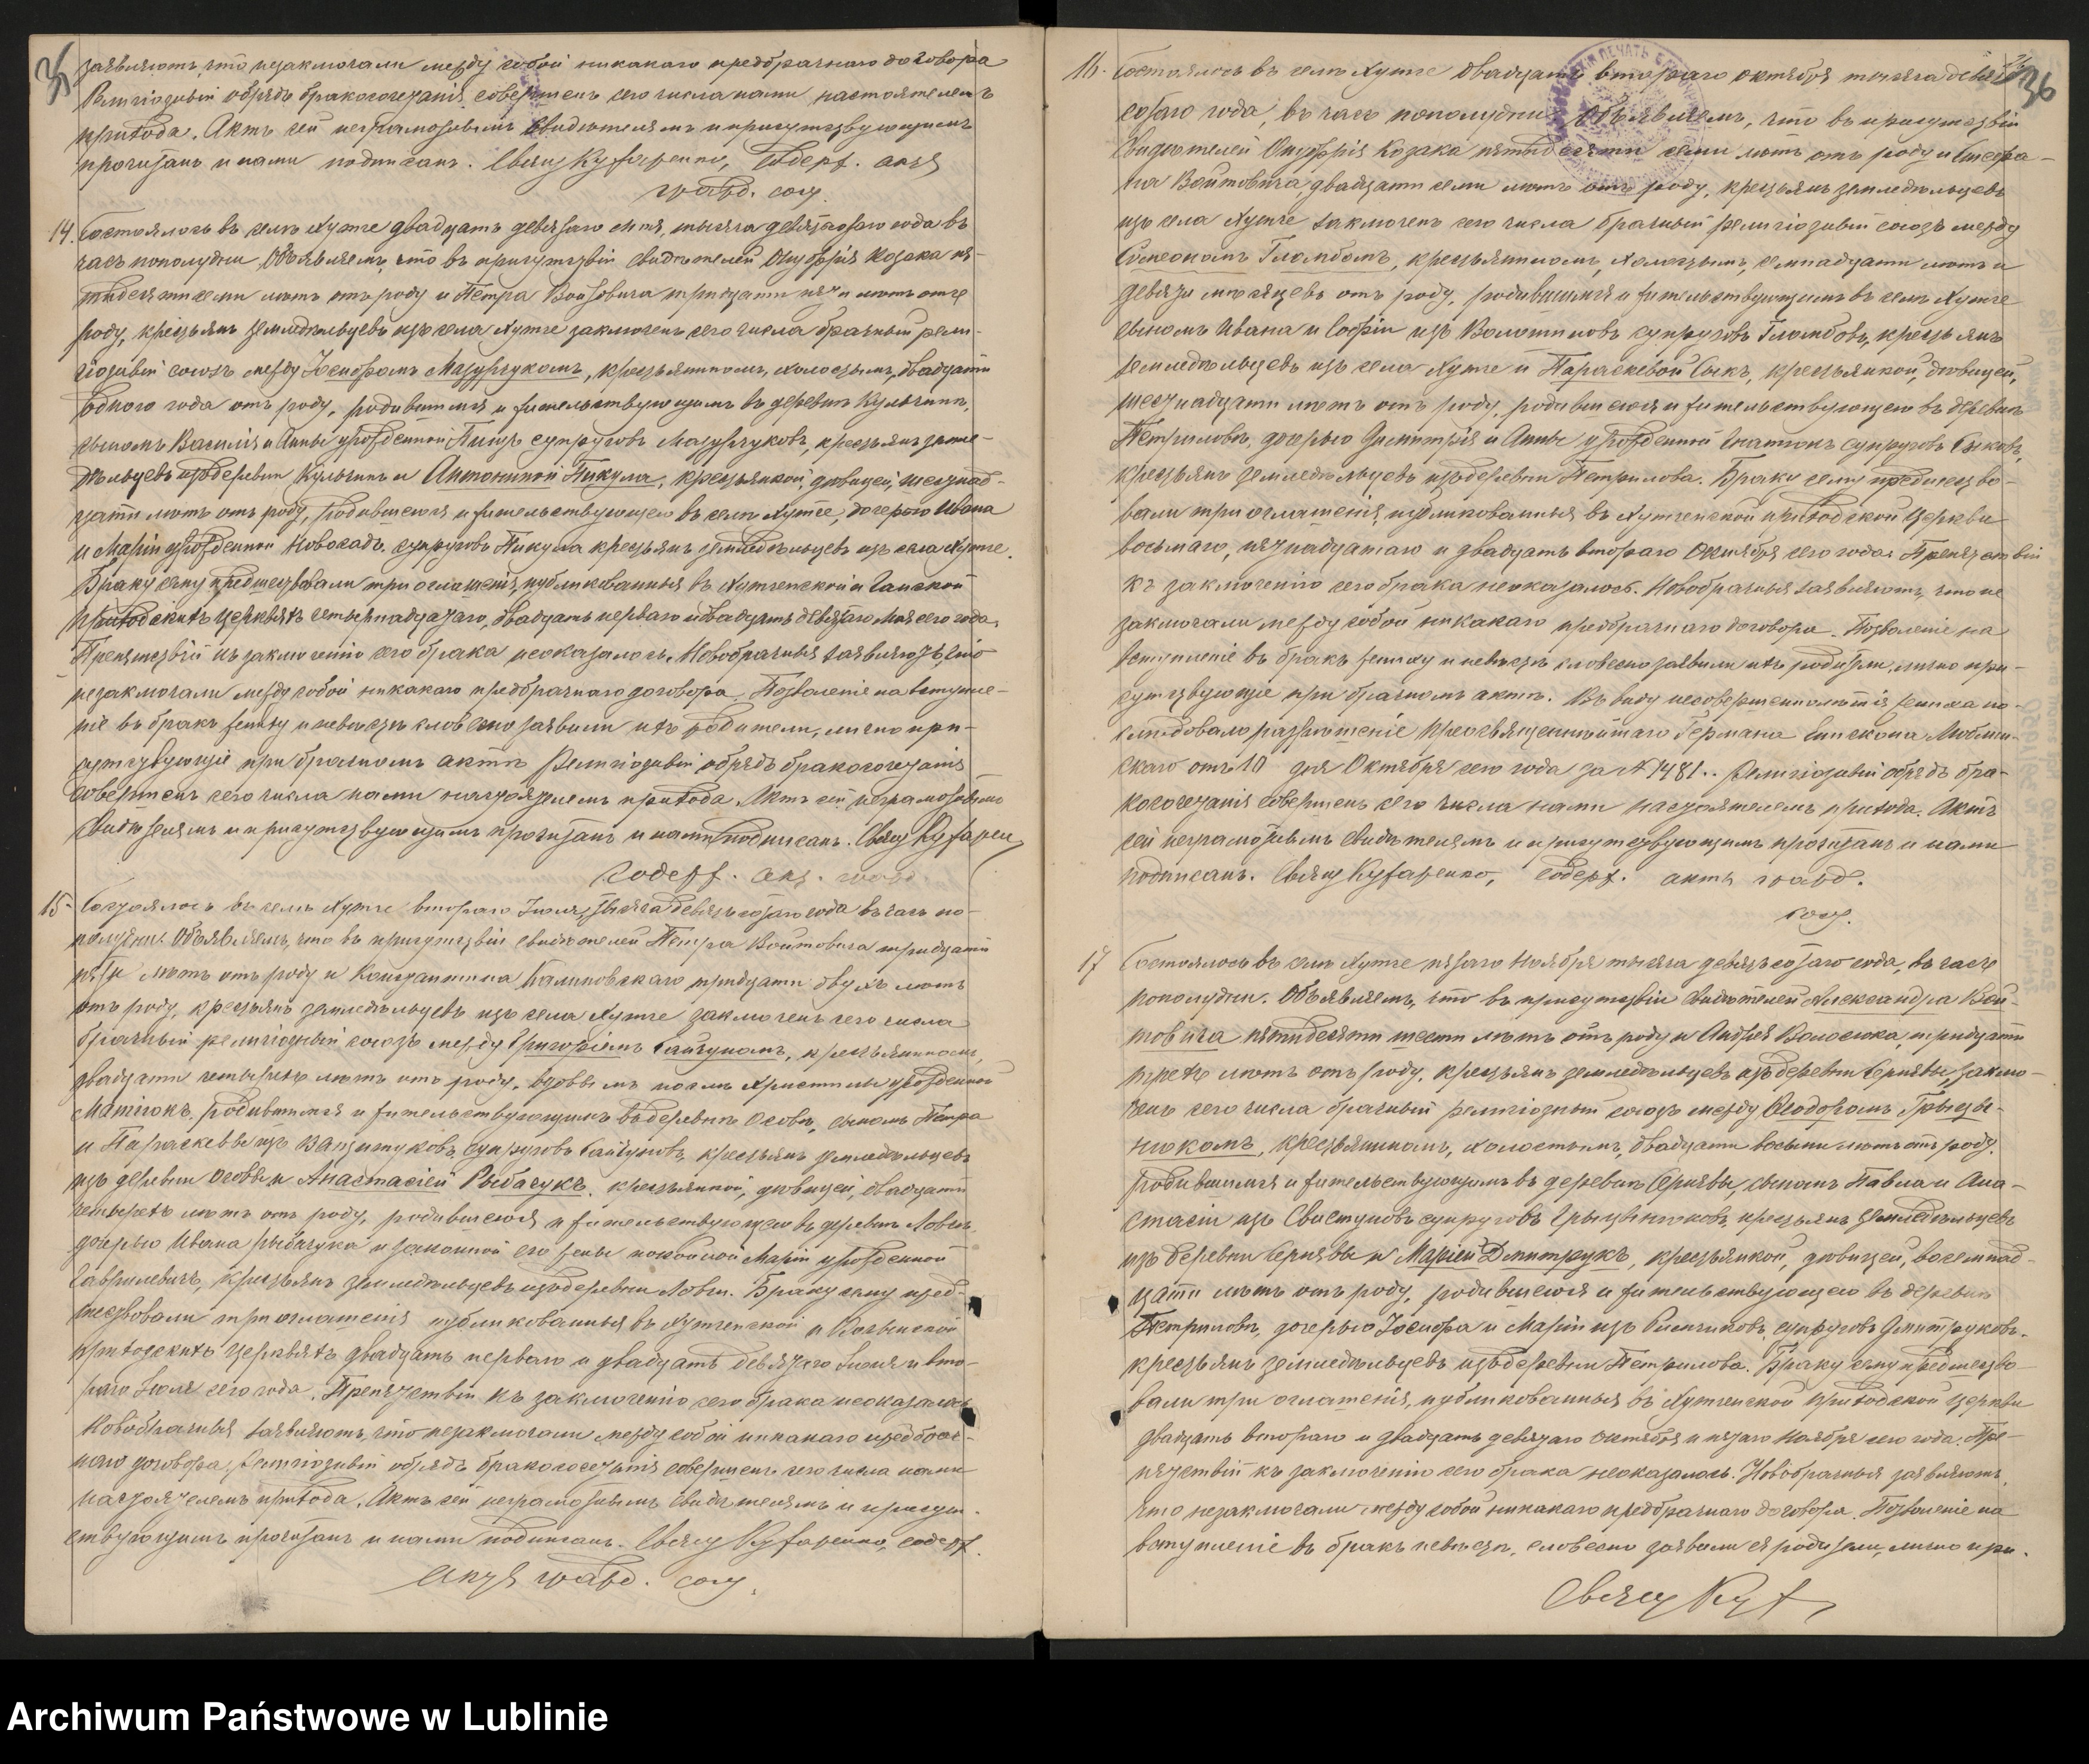 заявляютъ, что незаключали между собой никакаго предбрачнаго договора
Религіозный обрядъ бракосочетанія совершенъ сего числа нами настоятелемъ
прихода. Актъ сей неграмотнымъ свидѣтелямъ и присутствующимъ
прочитанъ и нами подписанъ.
14. Состоялось въ селѣ Хутче двадцать девятаго тысяча девятьсотаго года въ
часъ пополудни Объявляемъ, что въ присутствіи свидѣтелей Онуфрія Козака пя-
тьдесяти семи лѣтъ отъ роду и Петра Войтовича тридцати пяти лѣтъ отъ
роду, крестьянъ земледѣльцевъ изъ села Хутче заключенъ сего числа брачный рели-
гіозный союзъ между Іосифомъ Мазурчукомъ, крестьяниномъ, холостымъ, двадцати
одного года отъ роду, родившимся и жительствующимъ въ деревнѣ Кульчинъ,
сыномъ Василія и Анны урожденной супруговъ Мазурчуковъ, крестьянъ земле-
дѣльцевъ изъ деревни Кульчинъ и Антониной Пикула, крестьянкой, дѣвицей, шестнад-
цати лѣтъ отъ роду, родившеюся и жительствующею въ селѣ Хутче, дочерью Ивана
и Маріи урожденной Новосадъ супруговъ Пикула крестьянъ земледѣльцевъ изъ села Хутче.
Браку сему предшествовали три оглашенія, публикованныя въ Хутченской и Ганской
приходскихъ церквяхъ четырнадцатаго, двадцать перваго и двадцать девятаго Мая сего года.
Препятствій къ заключенію сего брака неоказалось. Новобрачныя заявляютъ, что
незаключали между собой никакаго предбрачнаго договора. Позволеніе на вступле-
ніе въ бракъ жениху и невѣстѣ словесно заявили ихъ родители, лично при-
сутствующіе при брачномъ актѣ. Религіозный обрядъ бракосочетанія
совершенъ сего числа нами настоятелемъ прихода. Актъ сей неграмотнымъ
свидѣтелямъ и присутствующимъ прочитанъ и нами подписанъ.
15. Состоялось въ селѣ Хутче втораго Іюля тысяча девятьсотаго года въ часъ по-
полудни. Объявляемъ, что въ присутствіи свидѣтелей Петра Войтовича тридцати
пяти лѣтъ отъ роду и Константина Калиновскаго тридцати двухъ лѣтъ
отъ роду, крестьянъ земледѣльцевъ изъ села Хутче заключенъ сего числа
брачный религіозный союзъ между Григоріемъ Гайчукомъ, крестьяниномъ,
двадцати четырехъ лѣтъ отъ роду, вдовымъ послѣ Христины урожденной
Матіюкъ, родившимся и жительствующимъ въ деревнѣ Особѣ, сыномъ Петра
и Параскевы изъ супруговъ Гайчуковъ, крестьянъ земледѣльцевъ
изъ деревни Особы и Анастасіей Рыбачукъ, крестьянкой, дѣвицей, двадцати
четырехъ лѣтъ отъ роду, родившеюся и жительствующею въ деревнѣ Ловчѣ,
дочерью Ивана Рыбачука и законной его жены покойной Маріи урожденной
Гаврилевичъ, крестьянъ земледѣльцевъ изъ деревни Ловчи. Браку сему пред-
шествовали три оглашенія публикованныя въ Хутченской и
приходскихъ церквяхъ двадцать перваго и двадцать девятаго Іюня и вто-
раго Іюля сего года. Препятствій къ заключенію сего брака неоказалось
Новобрачныя заявляютъ, что незаключали между собой никакаго предбрач-
наго договора. Религіозный обрядъ бракосочетанія совершенъ сего числа нами
настоятелемъ прихода. Актъ сей неграмотнымъ свидѣтелямъ и присут-
ствующимъ прочитанъ и нами подписанъ.
36
16. Состоялось въ селѣ Хутче двадцать втораго октября тысяча девять-
сотаго года, въ часъ пополудни. Объявляемъ, что въ присутствіи
свидѣтелей Онуфрія Козака пятьдесяти семи лѣтъ отъ роду и Стефа-
на Войтовича двадцати семи лѣтъ отъ роду, крестьянъ земледѣльцевъ
изъ села Хутче заключенъ сего числа брачный религіозный союзъ между
Симеономъ Гломбомъ, крестьяниномъ, холостымъ, семнадцати лѣтъ и
девяти мѣсяцевъ отъ роду, родившимся и жительствующимъ въ селѣ Хутче
сыномъ Ивана и Софіи изъ супруговъ Гломбовъ, крестьянъ
земледѣльцевъ изъ села Хутче и Параскевой Сыкъ, крестьянкой, дѣвицей,
шестнадцати лѣтъ отъ роду, родившеюся и жительствующею въ деревнѣ
Петриловѣ, дочерью Димитрія и Анны урожденной супруговъ Сыковъ,
крестьянъ земледѣльцевъ изъ деревни Петрилова. Браку сему предшество-
вали три оглашенія, публикованныя въ Хутченской приходской церкви
восьмаго, пятнадцатаго и двадцать втораго Октября сего года. Препятствій
къ заключенію сего брака неоказалось. Новобрачныя заявляютъ, что не
заключали между собой никакаго предбрачнаго договора. Позволеніе на
вступленіе въ бракъ жениху и невѣстѣ словесно заявили ихъ родители, лично при-
сутствующіе при брачномъ актѣ. Въ виду несовершеннолѣтія жениха по-
слѣдовало разрѣшеніе Преосвященнѣйшаго Германа Епископа Люблин-
скаго отъ 10 дня Октября сего года за № 7481. Религіозный обрядъ бра-
косочетанія совершенъ сего числа нами настоятелемъ прихода. Актъ
сей неграмотнымъ свидѣтелямъ и присутствующимъ прочитанъ и нами
подписанъ.
17 Состоялось въ селѣ Хутче пятаго Ноября тысяча девятьсотаго года, въ часъ
пополудни. Объявляемъ, что въ присутствіи свидѣтелей Александра Вой-
товича пятидесяти шести лѣтъ отъ роду и Андрея Волосюка, тридцати
трехъ лѣтъ отъ роду, крестьянъ земледѣльцевъ изъ деревни Чернявы, заклю-
ченъ сего числа брачный религіозный союзъ между Ѳеодоромъ Грыцы-
нюкомъ, крестьяниномъ, холостымъ, двадцати восьми лѣтъ отъ роду.
родившимся и жительствующимъ въ деревнѣ Чернявы, сыномъ Павла и Ана-
стасіи изъ Свистуновъ супруговъ Грыцынюковъ, крестьянъ земледѣльцевъ
изъ деревни Чернявы и Маріей Дмитрукъ, крестьянкой, дѣвицей, восемнад-
цати лѣтъ отъ роду, родившеюся и жительствующею въ деревнѣ
Петриловѣ, дочерью Іосифа и Маріи изъ супруговъ Дмитруковъ.
крестьянъ земледѣльцевъ изъ деревни Петрилова. Браку сему предшество-
вали три оглашенія, публикованныя въ Хутченской приходской церкви
двадцать втораго и двадцать девятаго Октября и пятаго Ноября сего года. Пре-
пятствій къ заключенію сего брака неоказалось. Новобрачныя заявляютъ,
что незаключали между собой никакаго предбрачнаго договора. Позволеніе на
вступленіе въ бракъ невѣстѣ, словесно заявили ея родители, лично при-
Archiwum Państwowe w Lublinie